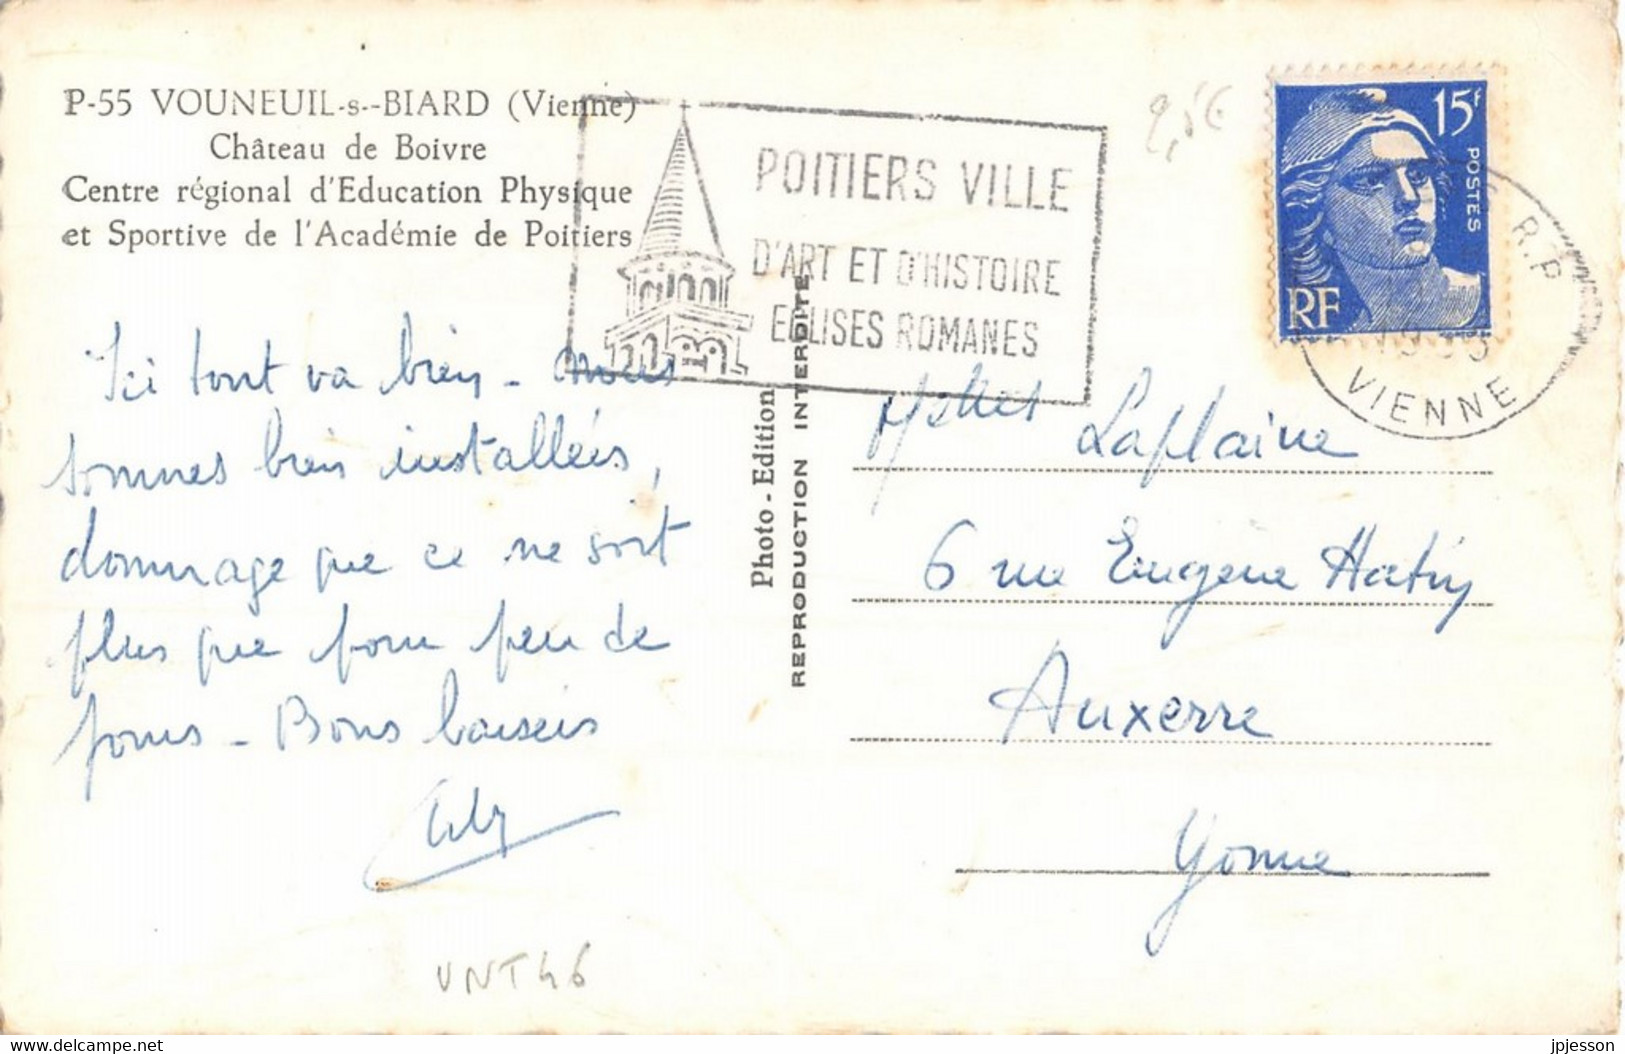 P-55 VOUNEUIL-s--BIARD (Vienne)
Château de Boivre
Centre régional d'Education Physique
et Sportive de l'Académie de Poitiers
POITIERS VILLE
D'ART ET D'HISTOIRE
EGLISES ROMANES
2,5€
15F
POSTES
RF
R.P
VIENNE
Ici tout va bien - nous
sommes bien installées,
dommage que ce ne soit
plus que pour peu de
jours - Bons baisers
Photo - Edition
REPRODUCTION INTERDITE
Melles Laplaine
6 rue Eugène Hatin
Auxerre
Yonne
VNT46
delcampe.net
jpjesson